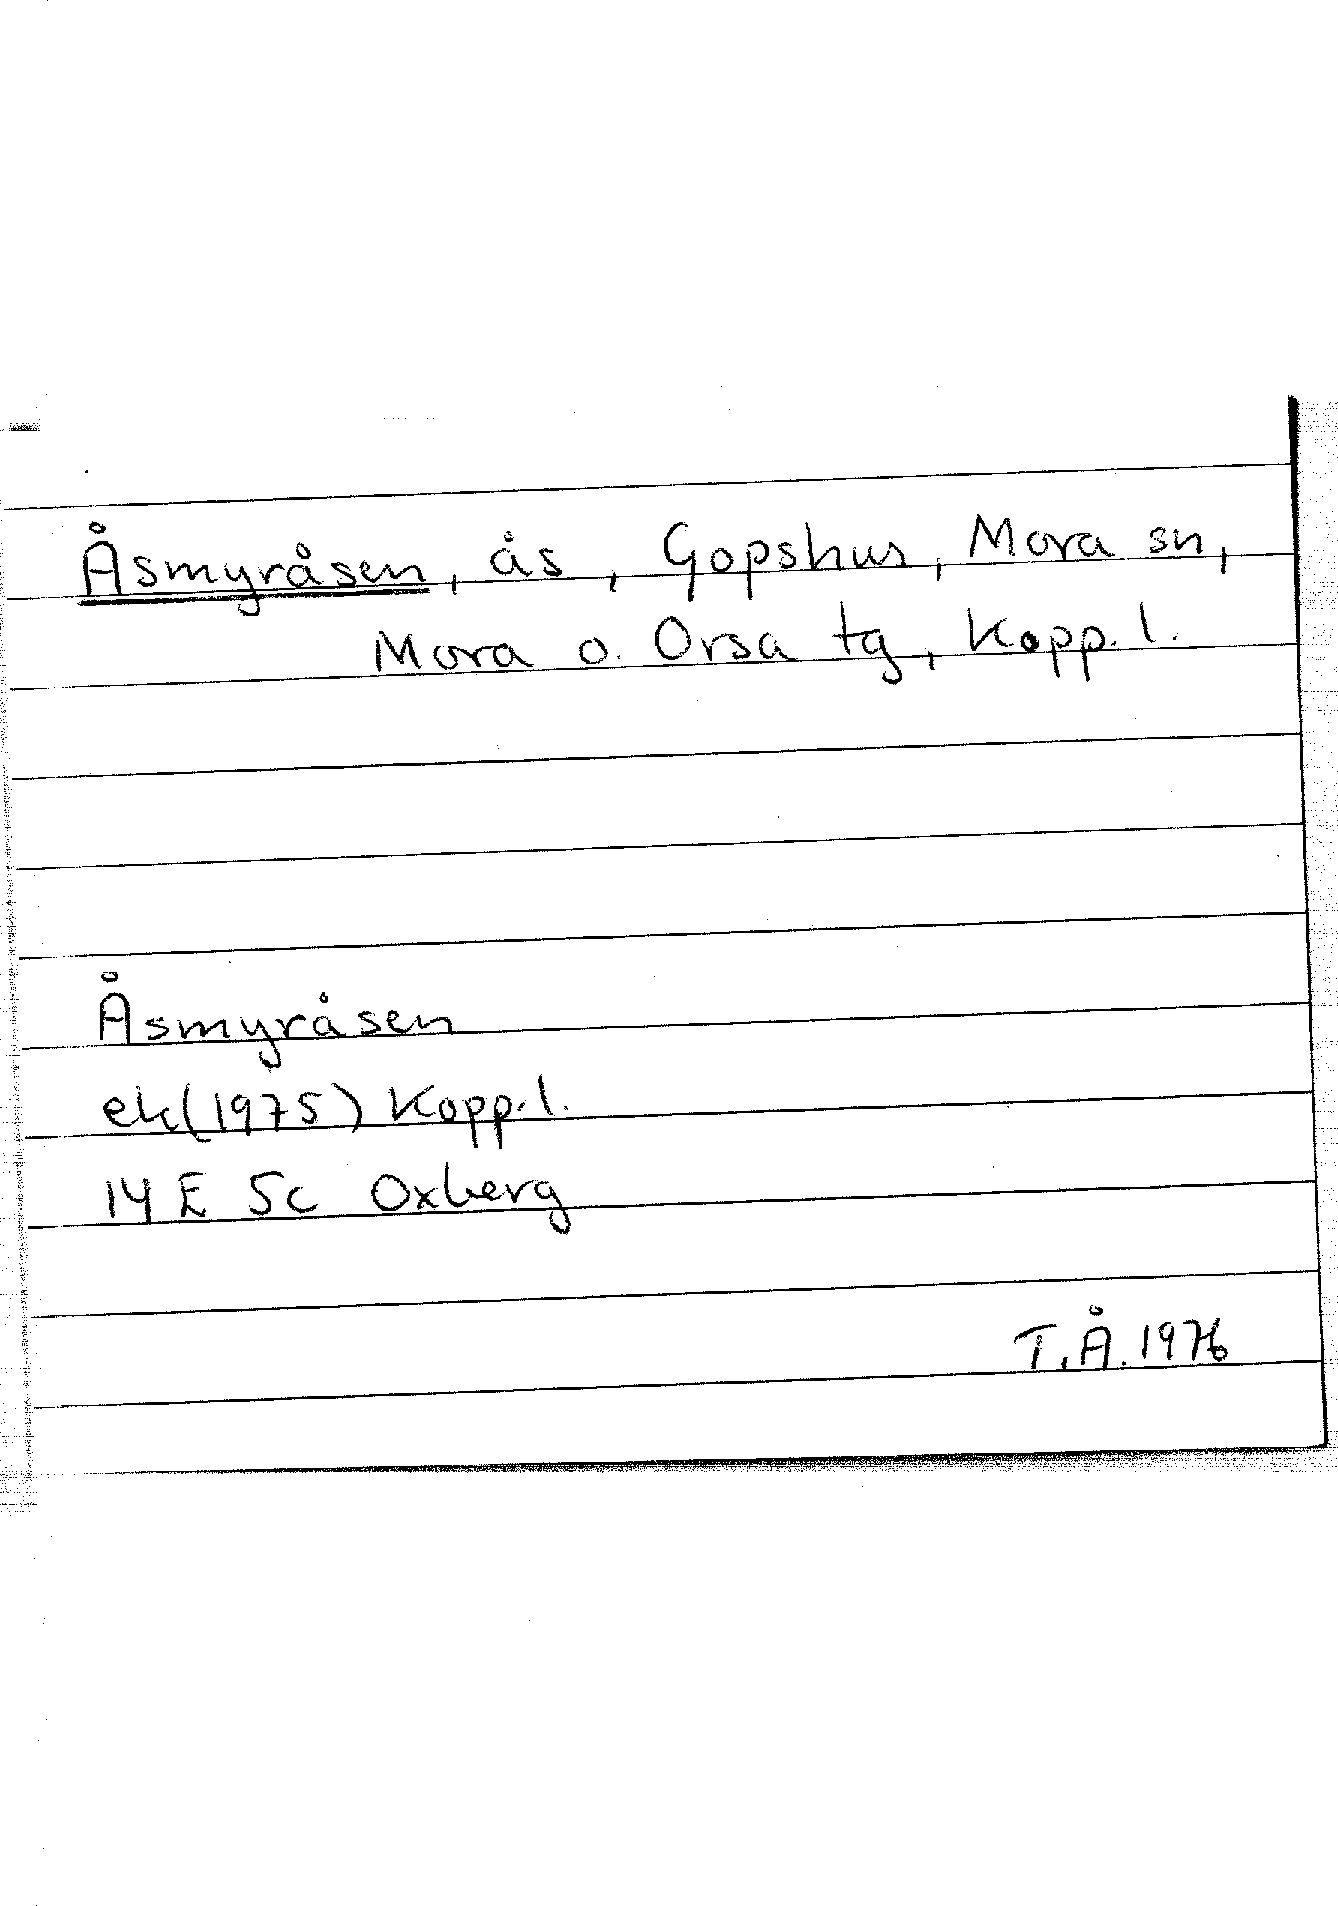 Åsmyråsen, ås, Gopshus, Mora sn,
Mora o. Orsa tg, Kopp. l.
Åsmyråsen
ek(1975) Kopp. l.
14 E 5c Oxberg
T.Å. 1976